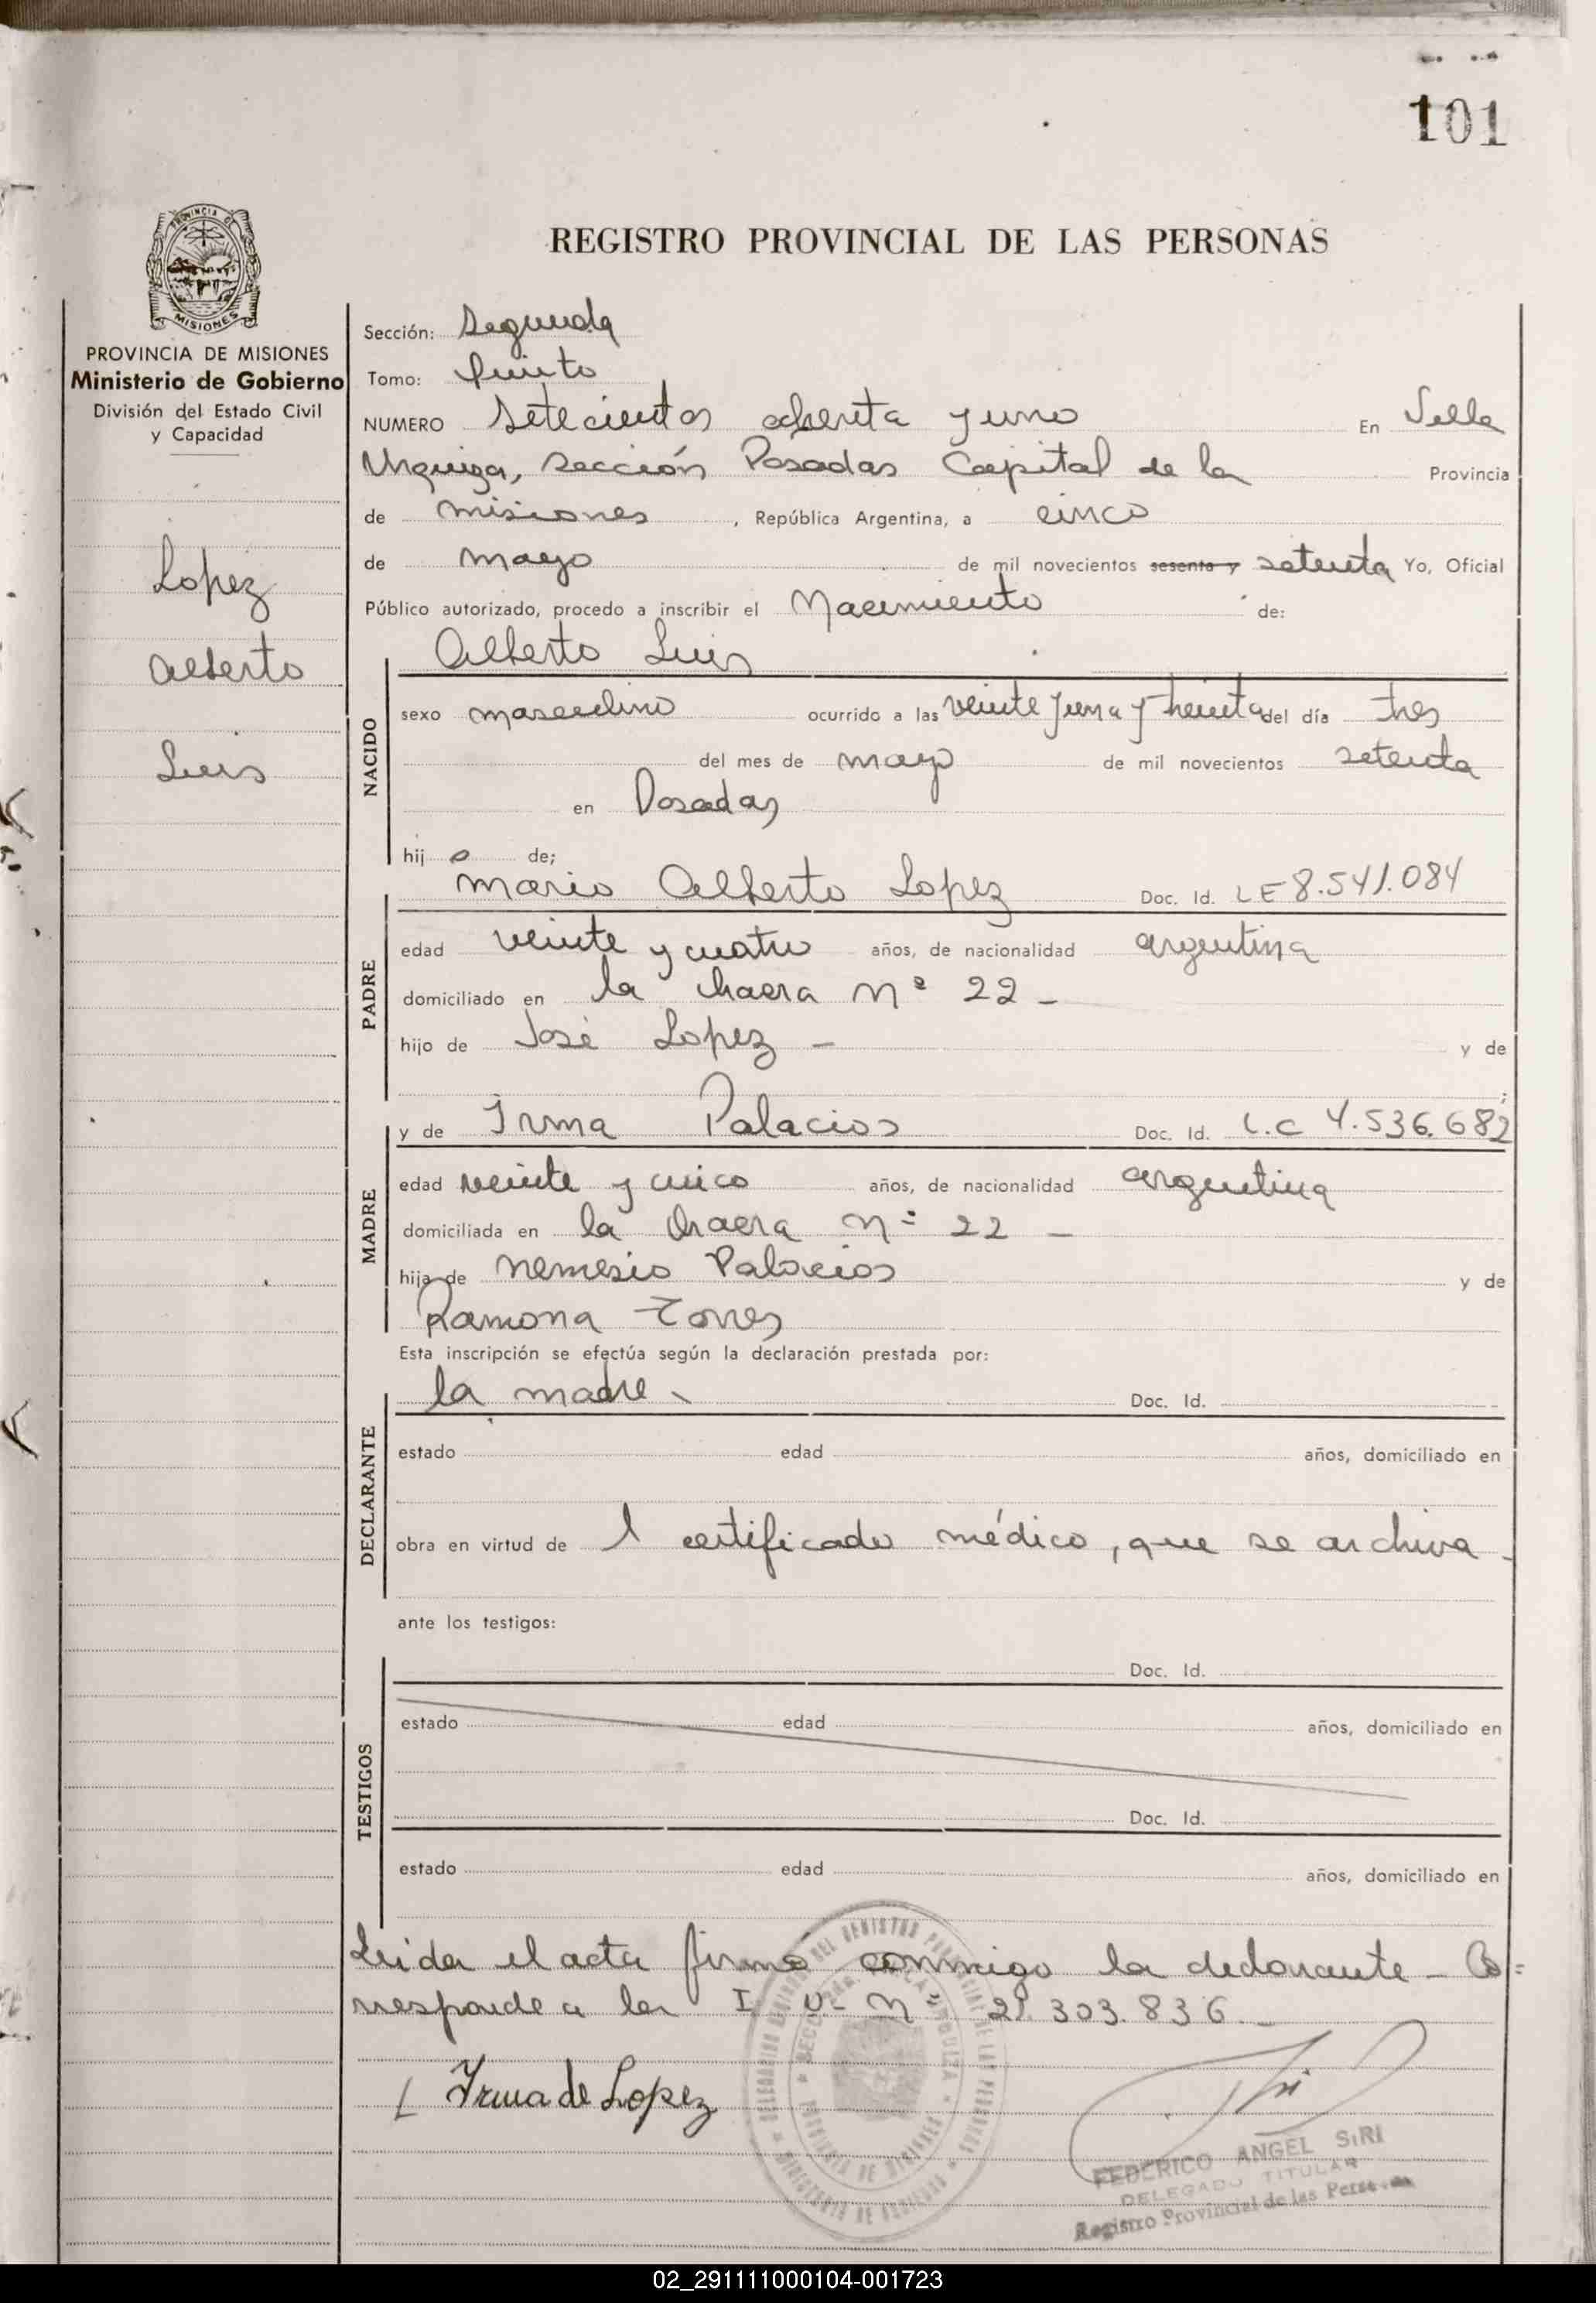 101
PROVINCIA DE
MISIONES
REGISTRO PROVINCIAL DE LAS PERSONAS
PROVINCIA DE MISIONES
Ministerio de Gobierno
División del Estado Civil
y Capacidad
Lopez
Alberto
Luis
Sección: Segunda
Tomo: Quinto
NUMERO Setecientos ochenta y uno En Villa
Urquiza, Sección Posadas Capital de la Provincia
de Misiones, República Argentina, a cinco
de mayo de mil novecientos sesenta y setenta Yo, Oficial
Público autorizado, procedo a inscribir el Nacimiento de:
Alberto Luis
NACIDO
sexo masculino ocurrido a las veinte y una y treinta del día tres
del mes de mayo de mil novecientos setenta
en Posadas
hij o de;
Mario Alberto Lopez Doc. Id. LE 8.541.084
PADRE
edad veinte y cuatro años, de nacionalidad argentina
domiciliado en la chacra Nº 22 -
hijo de José Lopez - y de
y de Irma Palacios Doc. Id. L.C 4.536.682
MADRE
edad veinte y cinco años, de nacionalidad argentina
domiciliada en la chacra Nº 22 -
hija de Nemesio Palacios y de
Ramona Torres
Esta inscripción se efectúa según la declaración prestada por:
la madre Doc. Id.
DECLARANTE
estado edad años, domiciliado en
obra en virtud de l certificado médico, que se archiva.
ante los testigos:
Doc. Id.
TESTIGOS
estado edad años, domiciliado en
Doc. Id.
estado edad años, domiciliado en
Leida el acta firma conmigo la declarante - Co=
rresponde a la I. U- Nº 21.303.836.-
Irma de Lopez
FEDERICO ANGEL SIRI
DELEGADO TITULAR
Registro Provincial de las Personas
02_291111000104-001723